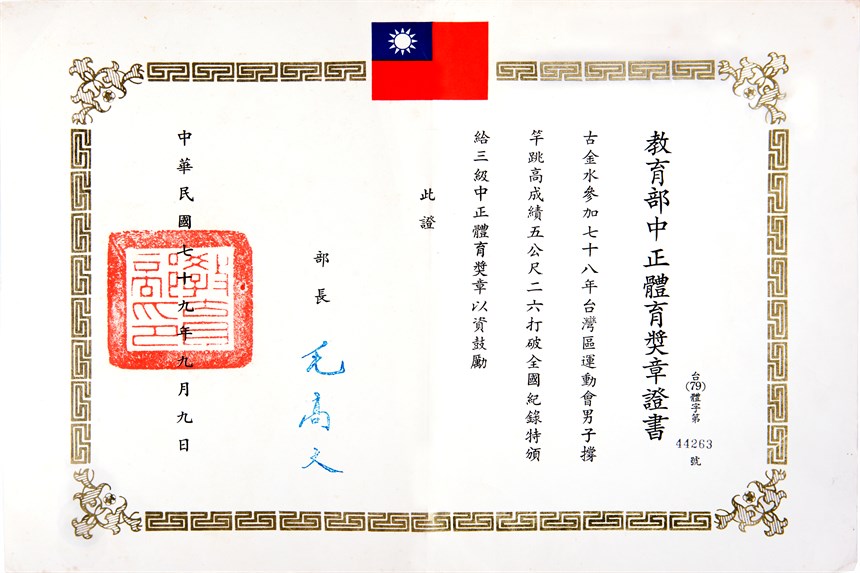 教育部中正體育獎章證書
台(79)體字第44263號
古金水參加七十八年台灣區運動會男子撐
竿跳高成績五公尺二六打破全國紀錄特頒
給三級中正體育獎章以資鼓勵
此證
部長 毛高文
中華民國七十九年九月九日
教育部印